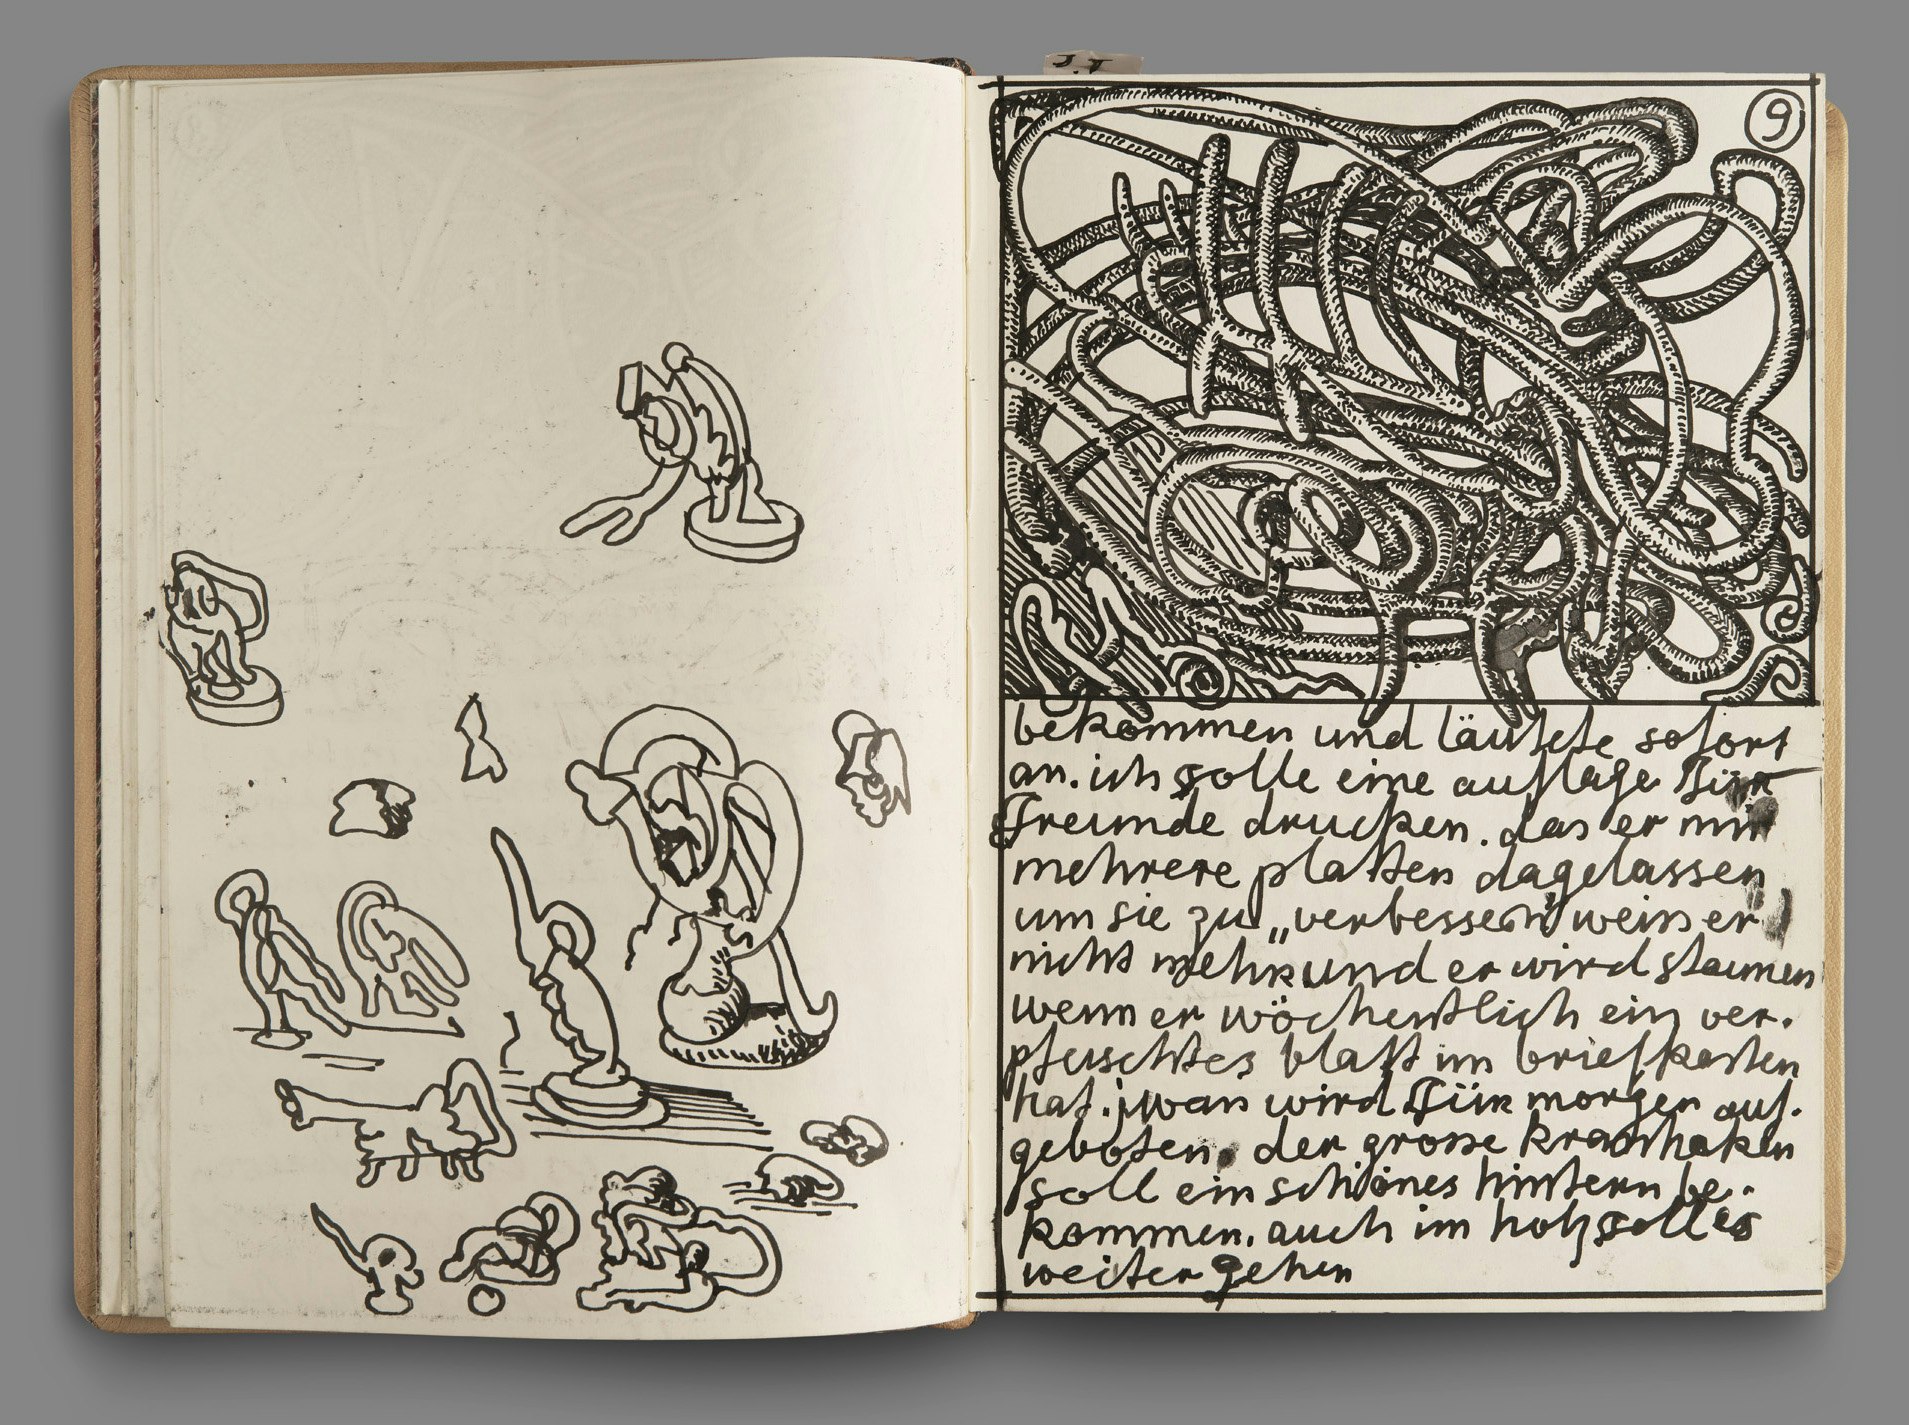 9
bekommen und läutete sofort
an. ich solle eine auflage für
freunde drucken. das er mir
mehrere platten dagelassen
um sie zu „verbessern" weiss er
nicht mehr und er wird staunen
wenn er wöchentlich ein ver-
pfuschtes blatt im briefkasten
hat. iwan wird für morgen auf-
geboten. der grosse
soll ein schönes hintern be-
kommen. auch im holz soll es
weiter gehen